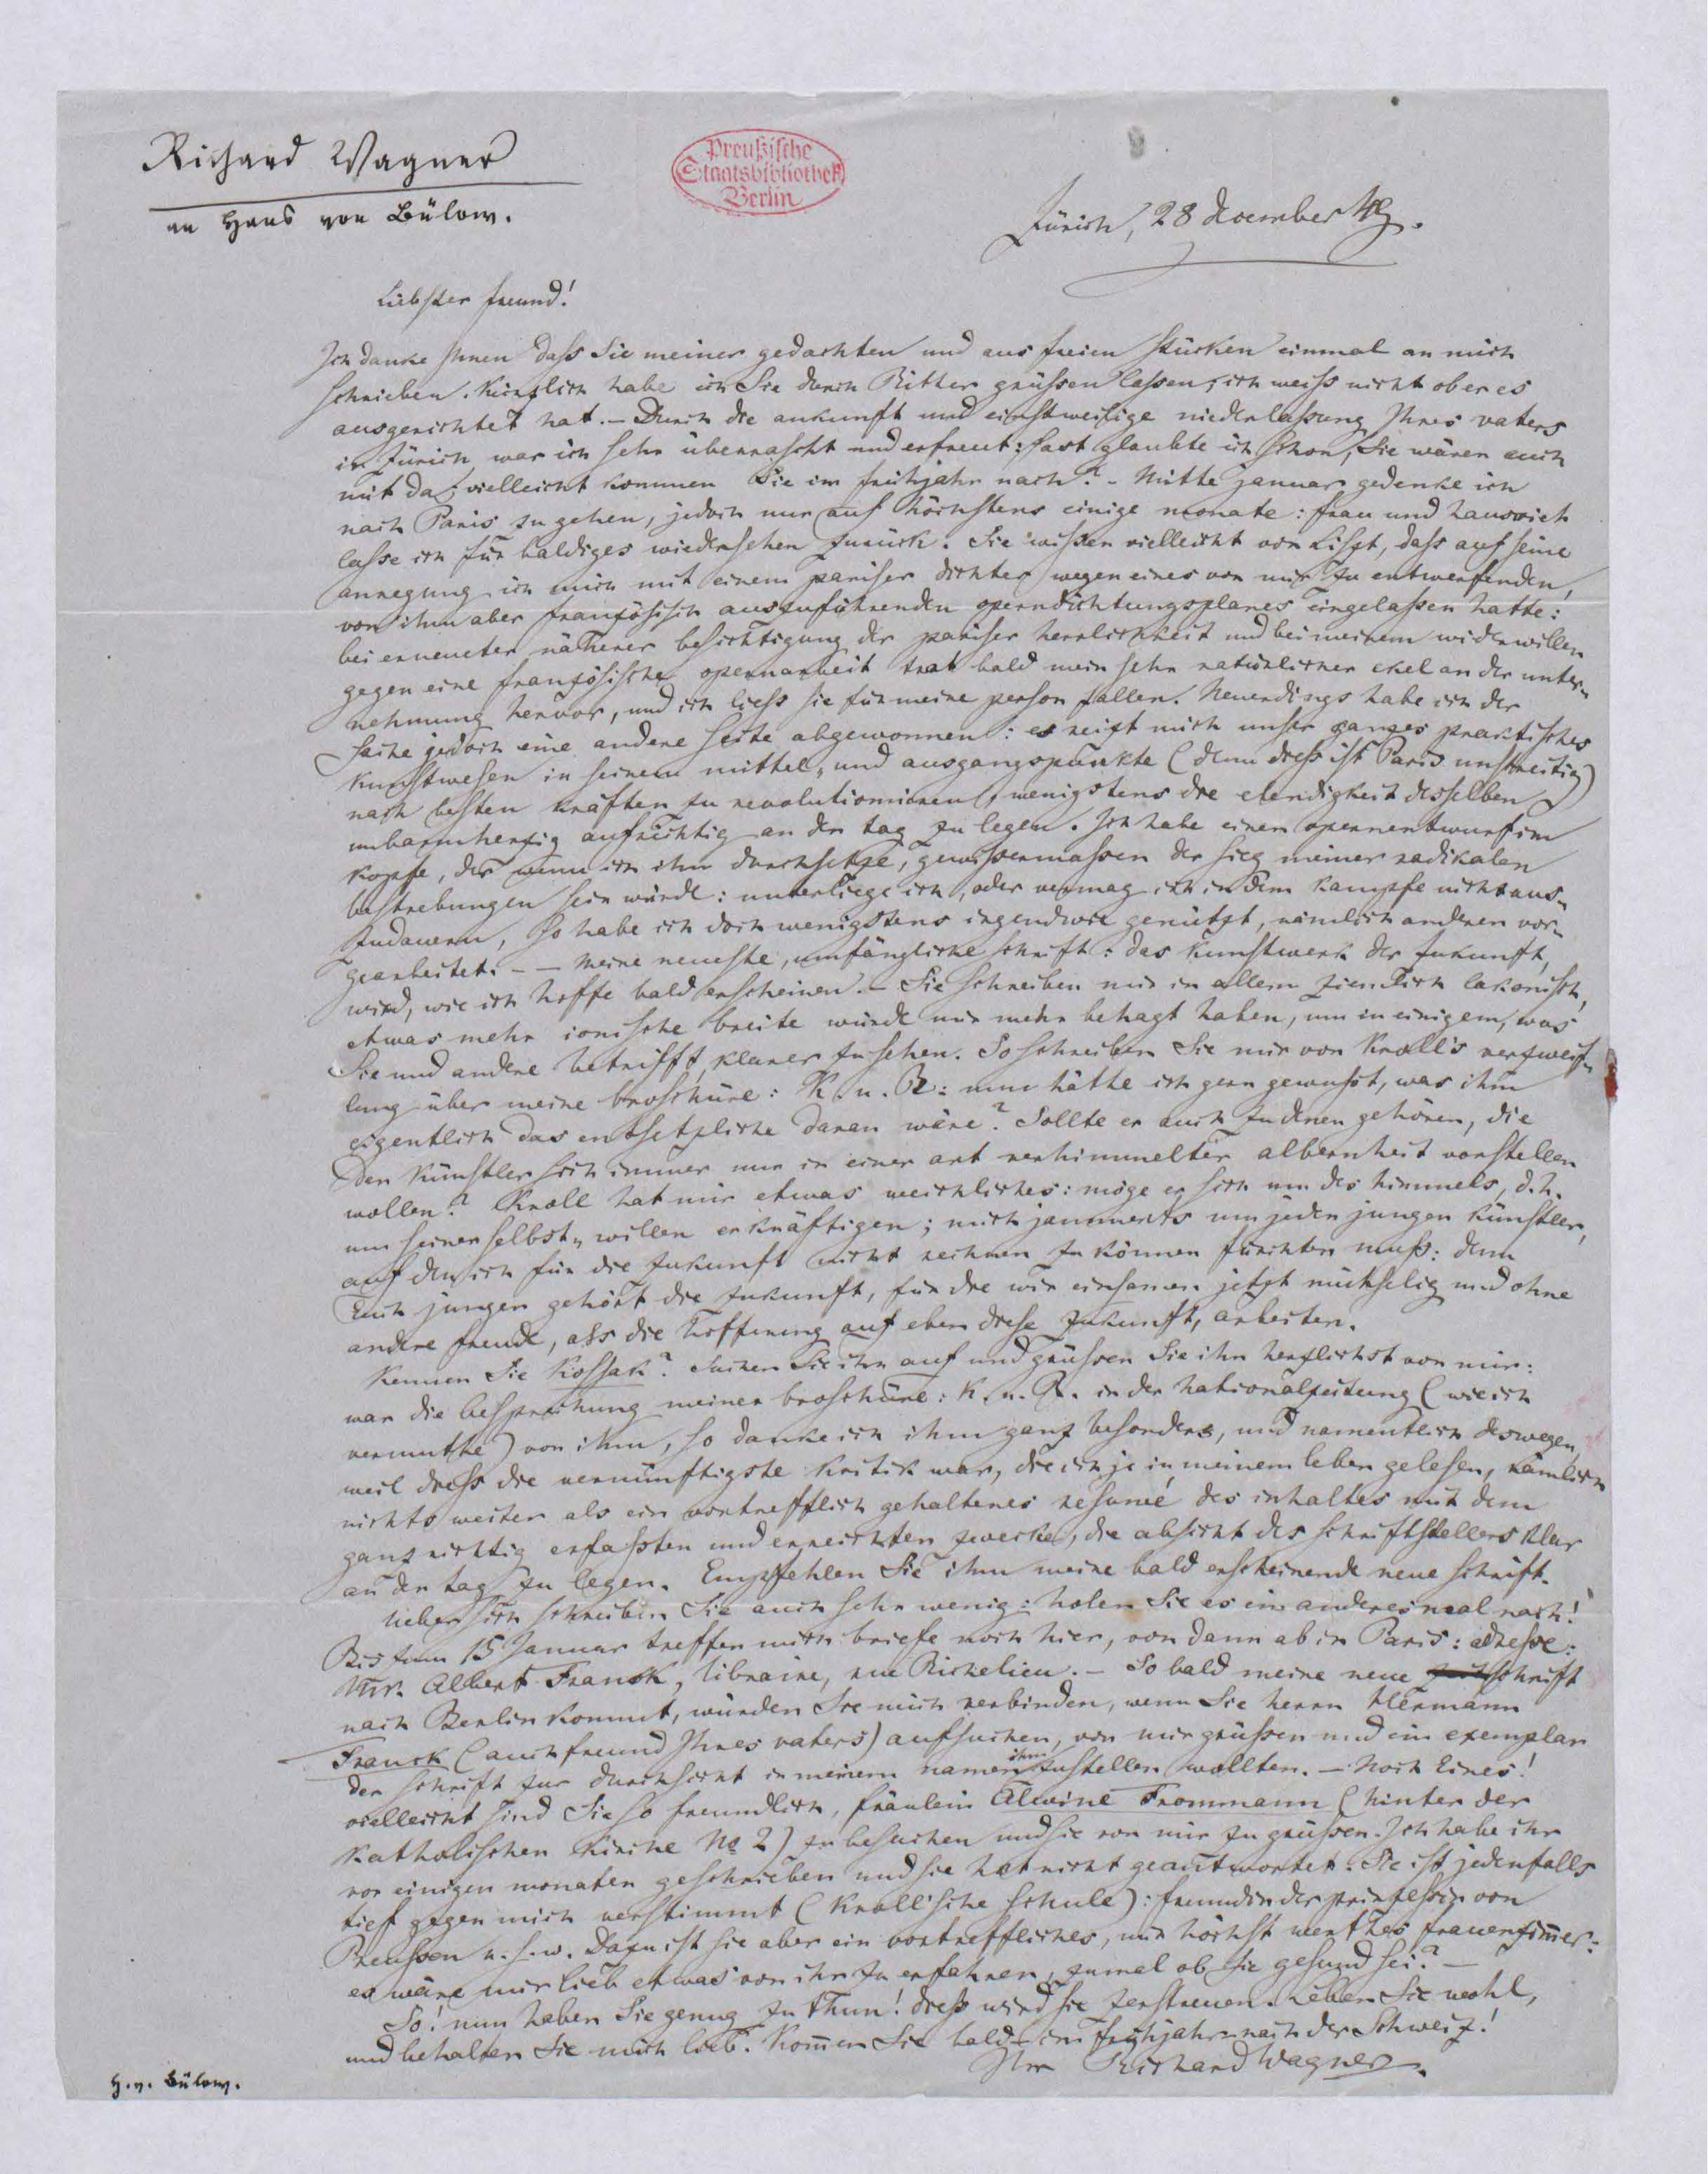 Richard Wagner
an Hans von Bülow.
Preußische
Staatsbibliothek
Berlin
Zürich, 28 december 49.
Liebster freund!
Ich danke Ihnen dass Sie meiner gedachten und aus freien stücken einmal an mich
schrieben. Kürzlich habe ich Sie durch Ritter grüssen lassen, ich weiss nicht ob er es
ausgerichtet hat. — Durch die ankunft und einstweilige niederlassung Ihres vaters
in Zürich war ich sehr überrascht und erfreut: fast glaubte ich schon, Sie wären auch
mit da; vielleicht kommen Sie im frühjahr nach? – Mitte januar gedenke ich
nach Paris zu gehen, jedoch nur auf höchstens einige monate: frau und hausvieh
lasse ich für baldiges wiedersehen zurück. Sie wissen vielleicht von Liszt, dass auf seine
anregung ich mich mit einem pariser dichter wegen eines von mir zu entwerfenden,
von ihm aber französisch auszuführenden operndichtungsplanes eingelassen hatte:
bei erneuter näherer besichtigung der pariser herrlichkeit und bei meinem widerwillen
gegen eine französische opernarbeit trat bald mein sehr natürlicher ekel an der unter-
nehmung hervor, und ich liess sie für meine person fallen. Neuerdings habe ich der
sache jedoch eine andere seite abgewonnen: es reizt mich unser ganzes praktisches
kunstwesen in seinem mittel- und ausgangspunkte (denn diess ist Paris unstreitig)
nach besten kräften zu revolutioniren, wenigstens die elendigkeit desselben
unbarmherzig aufrichtig an den tag zu legen. Ich habe einen opernentwurf im
kopfe, der wenn ich ihn durchsetze, gewissermassen der sieg meiner radikalen
bestrebungen sein würde: unterliege ich, oder vermag ich in dem kampfe nicht aus-
zudauern, so habe ich doch wenigstens irgendwie genützt, nämlich anderen vor-
gearbeitet. – – Meine neueste, umfängliche schrift: das Kunstwerk der Zukunft,
wird, wie ich hoffe bald erscheinen. – Sie schreiben mir in allem ziemlich lakonisch,
etwas mehr ionische breite würde mir mehr behagt haben, um in einigem, was
Sie und andere betrifft, klarer zu sehen. So schreiben Sie mir von Kroll's verzweif-
lung über meine broschüre: K. u. R: nun hätte ich gern gewusst, was ihm
eigentlich das entsetzliche daran wäre? Sollte er auch zu denen gehören, die
den Künstler sich immer nur in einer art verhimmelter albernheit vorstellen
wollen? Kroll hat mir etwas weichliches: möge er sich um des himmels, d. h.
um seiner selbst-willen erkräftigen; mich jammerts um jeden jungen künstler,
auf den ich für die zukunft nicht rechnen zu können fürchten muß: denn
Euch jungen gehört die zukunft, für die wir einsamen jetzt mühselig und ohne
andere freude, als die hoffnung auf eben diese zukunft, arbeiten.
Kennen Sie Kossak? Suchen Sie ihn auf und grüssen Sie ihn herzlichst von mir:
war die besprechung meiner broschüre: K. u. R. in der Nationalzeitung (wie ich
vermuthe) von ihm, so danke ich ihm ganz besonders, und namentlich deswegen,
weil diess die vernünftigste kritik war, die ich je in meinem leben gelesen, nämlich
nichts weiter als ein vortrefflich gehaltenes resumé des inhaltes mit dem
ganz richtig erfassten und erreichten zwecke, die absicht des schriftstellers klar
an den tag zu legen. Empfehlen Sie ihm meine bald erscheinende neue schrift.
Ueber sich schreiben Sie auch sehr wenig: holen Sie es ein anderes mal nach!
Bis zum 15 Januar treffen mich briefe noch hier, von dann ab in Paris: adresse:
Mr. Albert Franck, libraire, rue Richelieu. – So bald meine neue schrift
nach Berlin kommt, würden Sie mich verbinden, wenn Sie herrn Hermann
Franck (auch freund Ihres vaters) aufsuchen, von mir grüssen und ein exemplar
der schrift zur durchsicht in meinem namen ihm zustellen wollten. — Noch Eines!
vielleicht sind Sie so freundlich, fräulein Alwine Frommann (hinter der
katholischen kirche No 2) zu besuchen und sie von mir zu grüssen. Ich habe ihr
vor einigen monaten geschrieben und sie hat nicht geantwortet. Sie ist jedenfalls
tief gegen mich verstimmt (Krollsche schule): freundin der prinzessin von
Preussen u. s. w. Dazu ist sie aber ein vortreffliches, mir höchst werthes frauenzim̅er:
es wäre mir lieb etwas von ihr zu erfahren, zumal ob sie gesund sei? —
So! nun haben Sie genug zu thun! diess wird sie zerstreuen. Leben Sie wohl,
und behalten Sie mich lieb. Kom̅en Sie bald im frühjahr nach der Schweiz!
Ihr Richard Wagner.
H. v. Bülow.